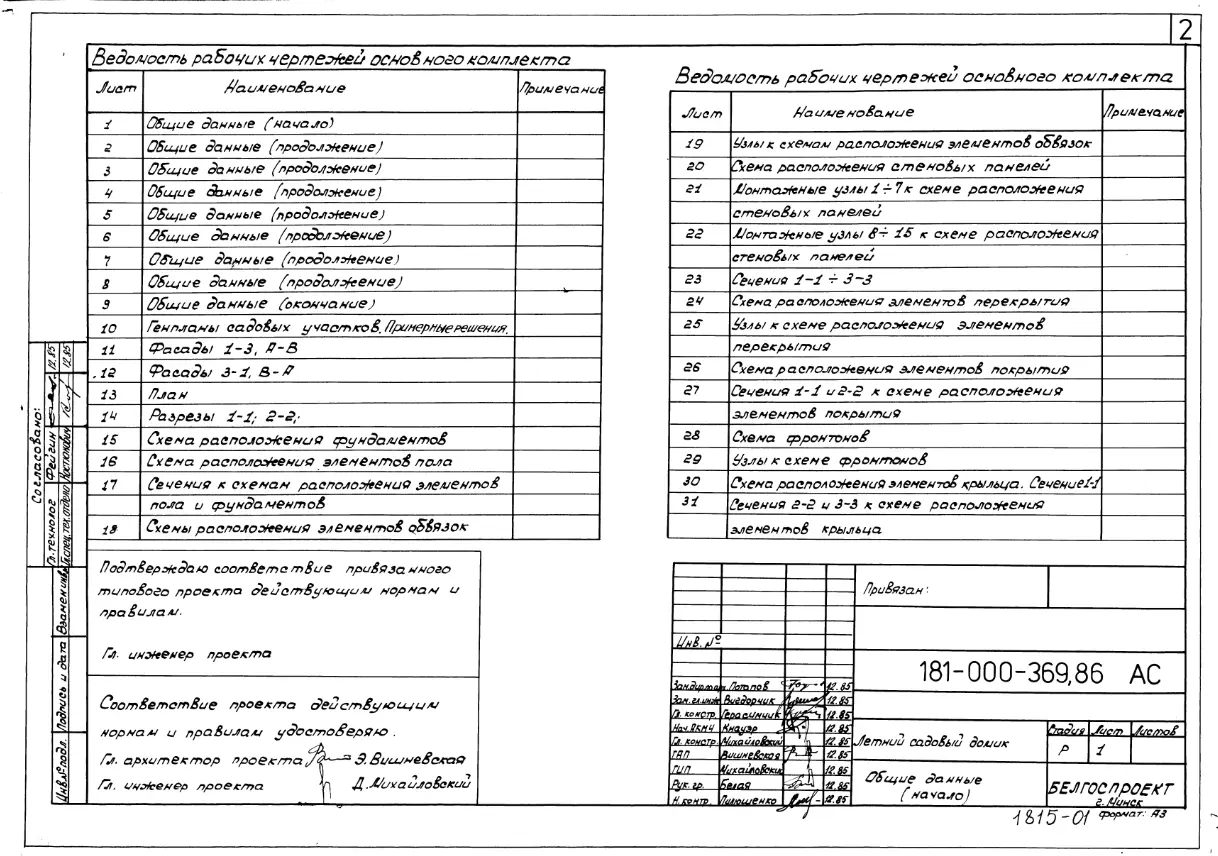 2
Ведомость рабочих чертежей основного комплекта
Лист Наименование Примечание
1 Общие данные (начало)
2 Общие данные (продолжение)
3 Общие данные (продолжение)
4 Общие данные (продолжение)
5 Общие данные (продолжение)
6 Общие данные (продолжение)
7 Общие данные (продолжение)
8 Общие данные (продолжение)
9 Общие данные (окончание)
10 Генпланы садовых участков. Примерные решения.
11 Фасады 1-3, А-В
12 Фасады 3-1, В-А
13 План
14 Разрезы 1-1; 2-2;
15 Схема расположения фундаментов
16 Схема расположения элементов пола
17 Сечения к схемам расположения элементов
пола и фундаментов
18 Схемы расположения элементов обвязок
Ведомость рабочих чертежей основного комплекта
Лист Наименование Примечание
19 Узлы к схемам расположения элементов обвязок
20 Схема расположения стеновых панелей
21 Монтажные узлы 1÷7 к схеме расположения
стеновых панелей
22 Монтажные узлы 8÷15 к схеме расположения
стеновых панелей
23 Сечения 1-1 ÷ 3-3
24 Схема расположения элементов перекрытия
25 Узлы к схеме расположения элементов
перекрытия
26 Схема расположения элементов покрытия
27 Сечения 1-1 и 2-2 к схеме расположения
элементов покрытия
28 Схема фронтонов
29 Узлы к схеме фронтонов
30 Схема расположения элементов крыльца. Сечение 1-1
31 Сечения 2-2 и 3-3 к схеме расположения
элементов крыльца
Подтверждаю соответствие привязанного
типового проекта действующим нормам и
правилам.
Гл. инженер проекта
Соответствие проекта действующим
нормам и правилам удостоверяю.
Гл. архитектор проекта Э. Вишневская
Гл. инженер проекта Д. Михайловский
Согласовано:
Гл. технолог Фейгин 12.85
12.85
Взамен инв.№
Подпись и дата
Инв.№ подл.
Привязан:
Инв. №
181-000-369,86 АС
Потапов 12.85
Зам.гл.инж Вигдорчик 12.85
Гл. констр. Герасимчик 12.85
Нач.ПКМЧ Кнауэр 12.85
Гл. констр. Михайловский 12.85
ГАП Вишневская 12.85
ГИП Михайловский 12.85
Рук. гр. Белая 12.85
Н. контр. Пилюшенко 12.85
Летний садовый домик
Стадия Лист Листов
Р 1
Общие данные
(начало)
БЕЛГОСПРОЕКТ
г. Минск
1815-01 формат: А3